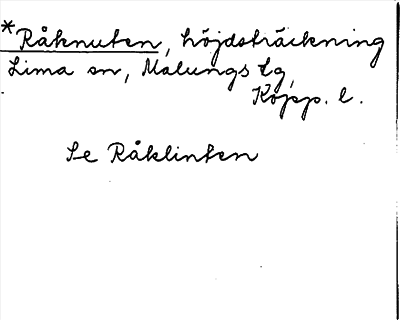 *Råknuten, höjdsträckning
Lima sn, Malungs tg,
Kopp. l.
Se Råklinten